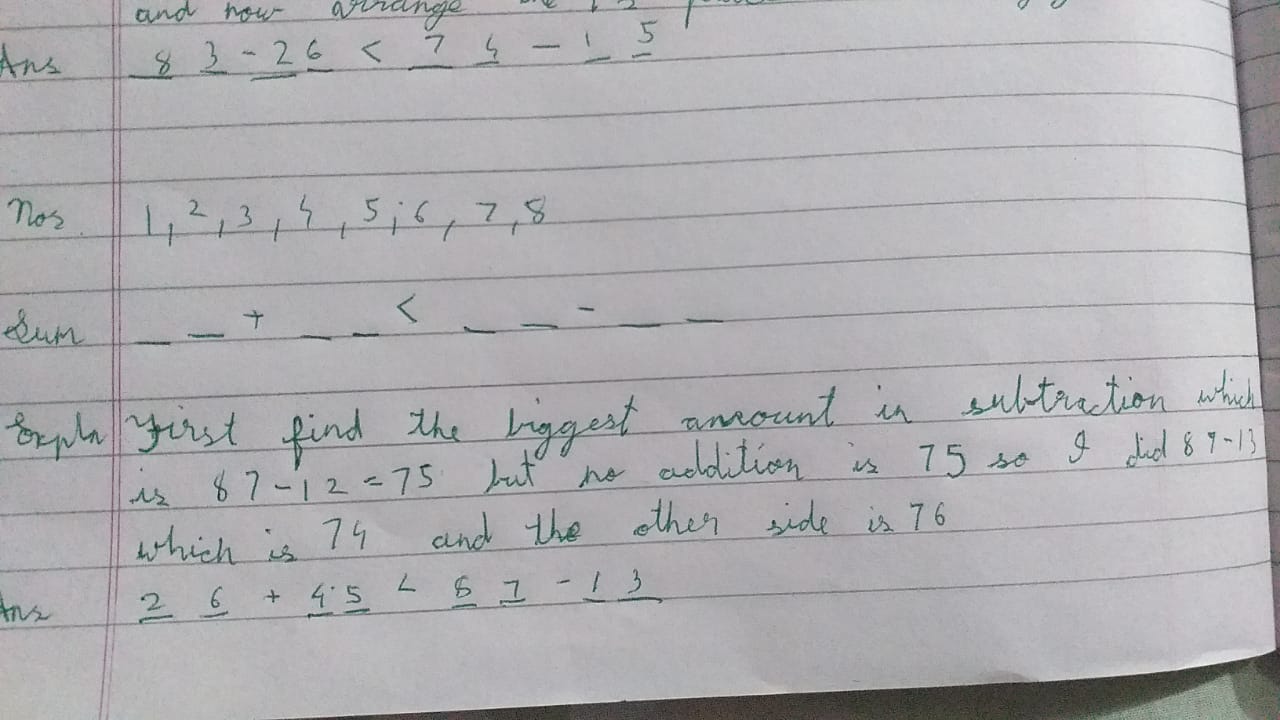 and now arrange the
Ans 8 3 - 2 6 < 7 4 - 1 5
Nos. 1, 2, 3, 4, 5, 6, 7, 8
Sum _ _ + _ _ < _ _ - _ _
Expln First find the biggest amount in subtraction which
is 87-12 = 75 but no addition is 75 so I did 87-13
which is 74 and the other side is 76
Ans 2 6 + 4 5 < 8 7 - 1 3